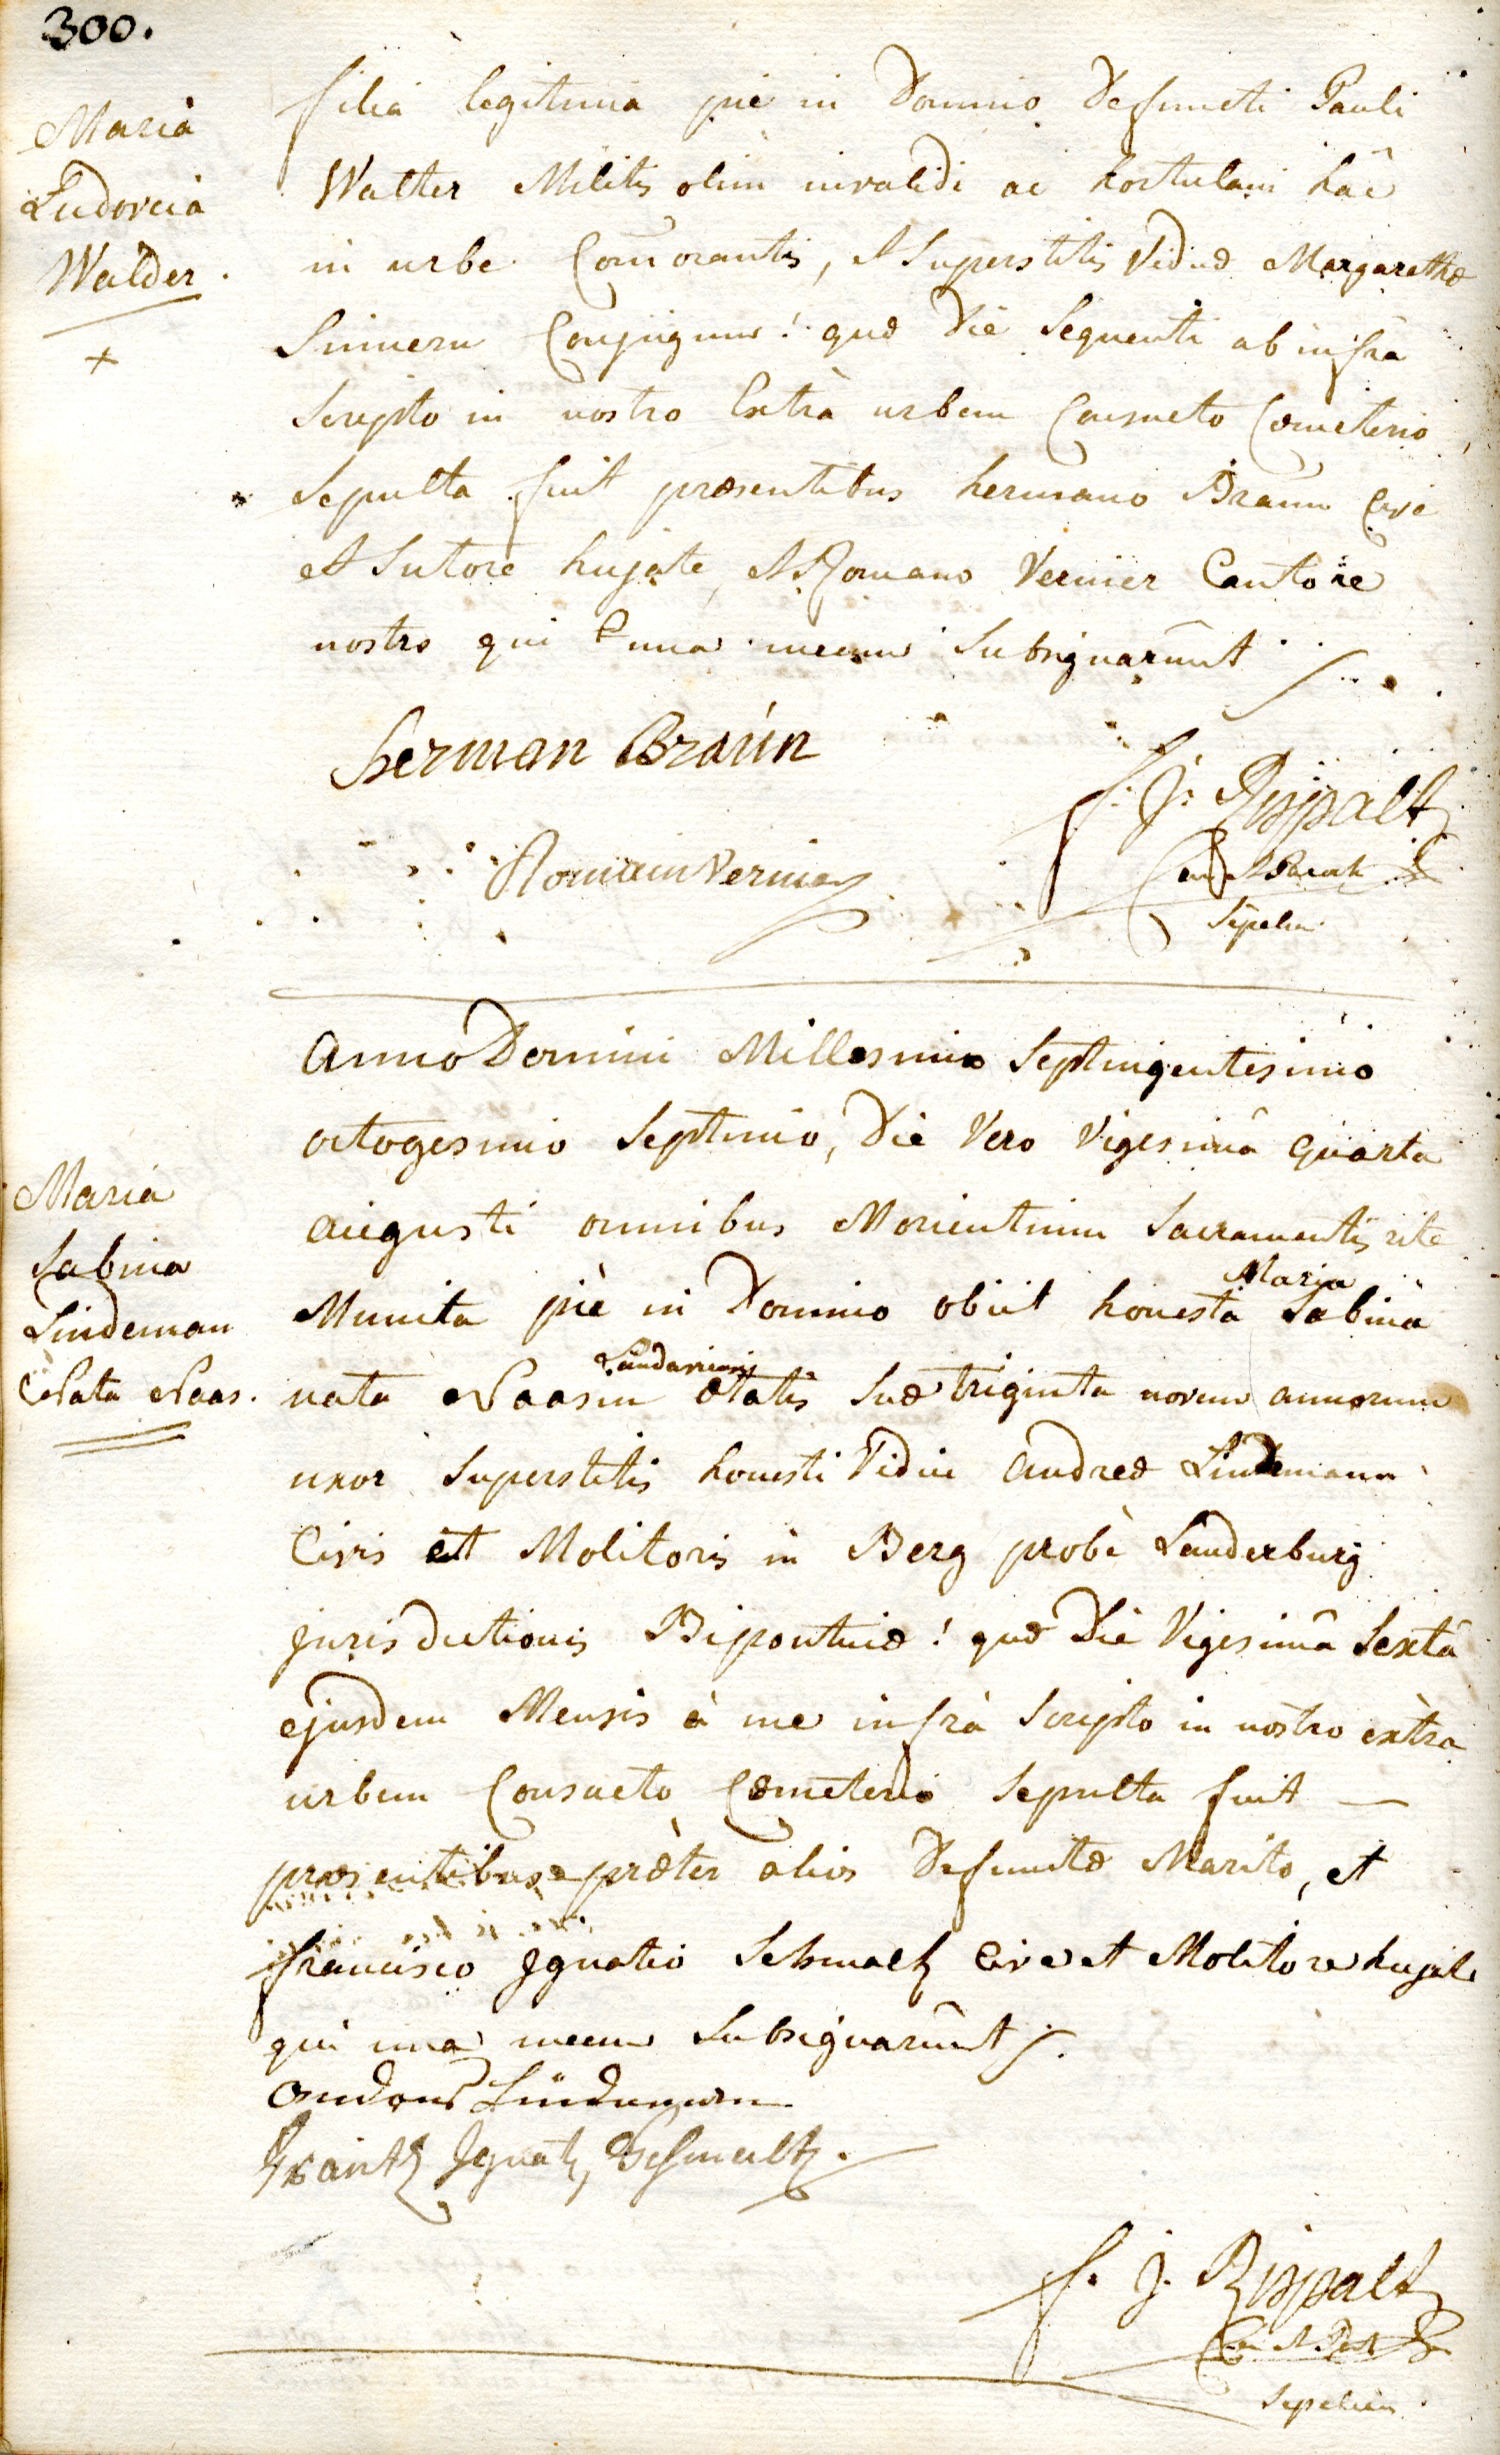 300.
Maria
Ludovcia
Walder.
+
filia legitima pie in Domino Defuncti Pauli
Walter Militis olim invalidi ac hortulani hâc
in urbe Com̄orantis, et Superstitis Viduæ Margarethæ
Conjugum! quæ Die Sequenti ab infra
Scripto in nostro Extrà urbem Consueto Cœmeterio
Sepulta fuit præsentibus hermano Braun Cive
et Sutore hujate, et Romano Vernier Cantore
nostro qui una mecum Subsignarunt
Herman Braun
F: J: Rippalt
Romain Vernier
Sepelien
Anno Domini Millesimo Septingentesimo
octogesimo Septimo, Die Vero Vigesimâ Quarta
augusti omnibus Morientium Sacramentis rite
Maria
Sabina
Lindeman
Nata Naas.
Munita piè in Domino obiit honesta Maria Sabina
nata Naasin ætatis Suæ triginta novem annorum
uxor Superstitis honesti Vidui Andreæ Lindemann
Civis et Molitoris in Berg probè Lauderburg
jurisdictionis Bipontinæ! quæ Die Vigesimâ Sextâ
ejusdem Mensis à me infrà Scripto in nostro extra
urbem Consueto Cœmeterio Sepulta fuit —
præsentibus præter alios Defunctæ Marito, et
francisco Ignatio Schmaltz Cive et Molitore hujate
qui una mecum Subsignarunt
Andreas Lindemann
Frantz Ignatz Schmaltz.
F. J. Rippalt
Sepelien